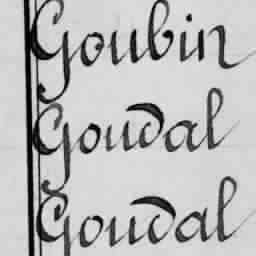 Goubin
Goudal
Goudal